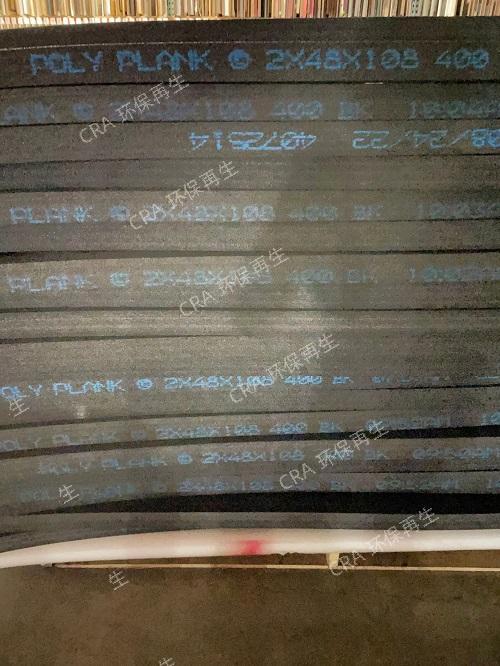 POLY PLANK ® 2X48X108 400
CRA 环保再生
LANK ® 2X48X108 400 BK
08/24/22 4072514
CRA 环保再生
PLANK ® 2X48X108 400 BK
CRA 环保再生
PLANK ® 2X48X108 400 BK
CRA 环保再生
POLY PLANK ® 2X48X108 400 BK
生
CRA 环保再生
POLY PLANK ® 2X48X108 400 BK
POLY PLANK ® 2X48X108 400 BK
CRA 环保再生
生
POLY PLANK ® 2X48X108 400 BK
CRA 环保再生
生
CRA 环保再生